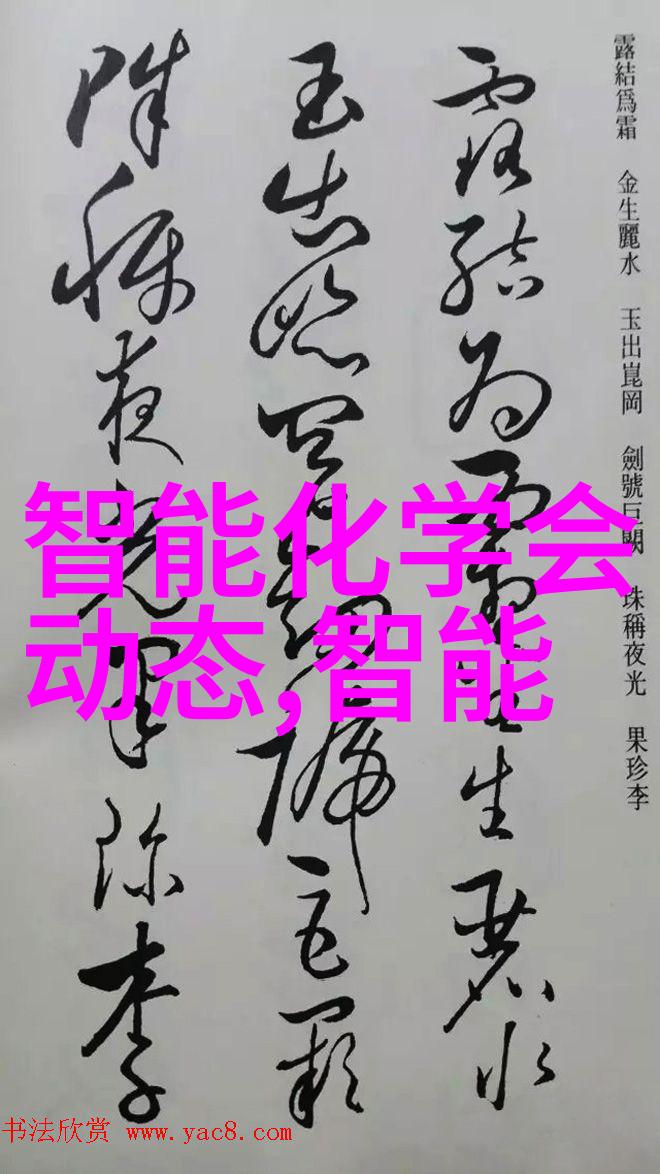 露結爲霜 金生麗水 玉出崑岡 劍號巨闕 珠稱夜光 果珍李
露結為霜金生麗水
玉出崑岡劍號巨闕
珠稱夜光果珍李
智能化学会
动态,智能
书法欣赏 www.yac8.com